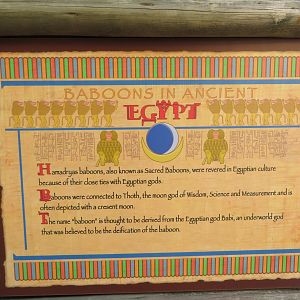 BABOONS IN ANCIENT
EGYPT
Hamadryas baboons, also known as Sacred Baboons, were revered in Egyptian culture
because of their close ties with Egyptian gods.
Baboons were connected to Thoth, the moon god of Wisdom, Science and Measurement and is
often depicted with a cresent moon.
The name "baboon" is thought to be derived from the Egyptian god Babi, an underworld god
that was believed to be the deification of the baboon.